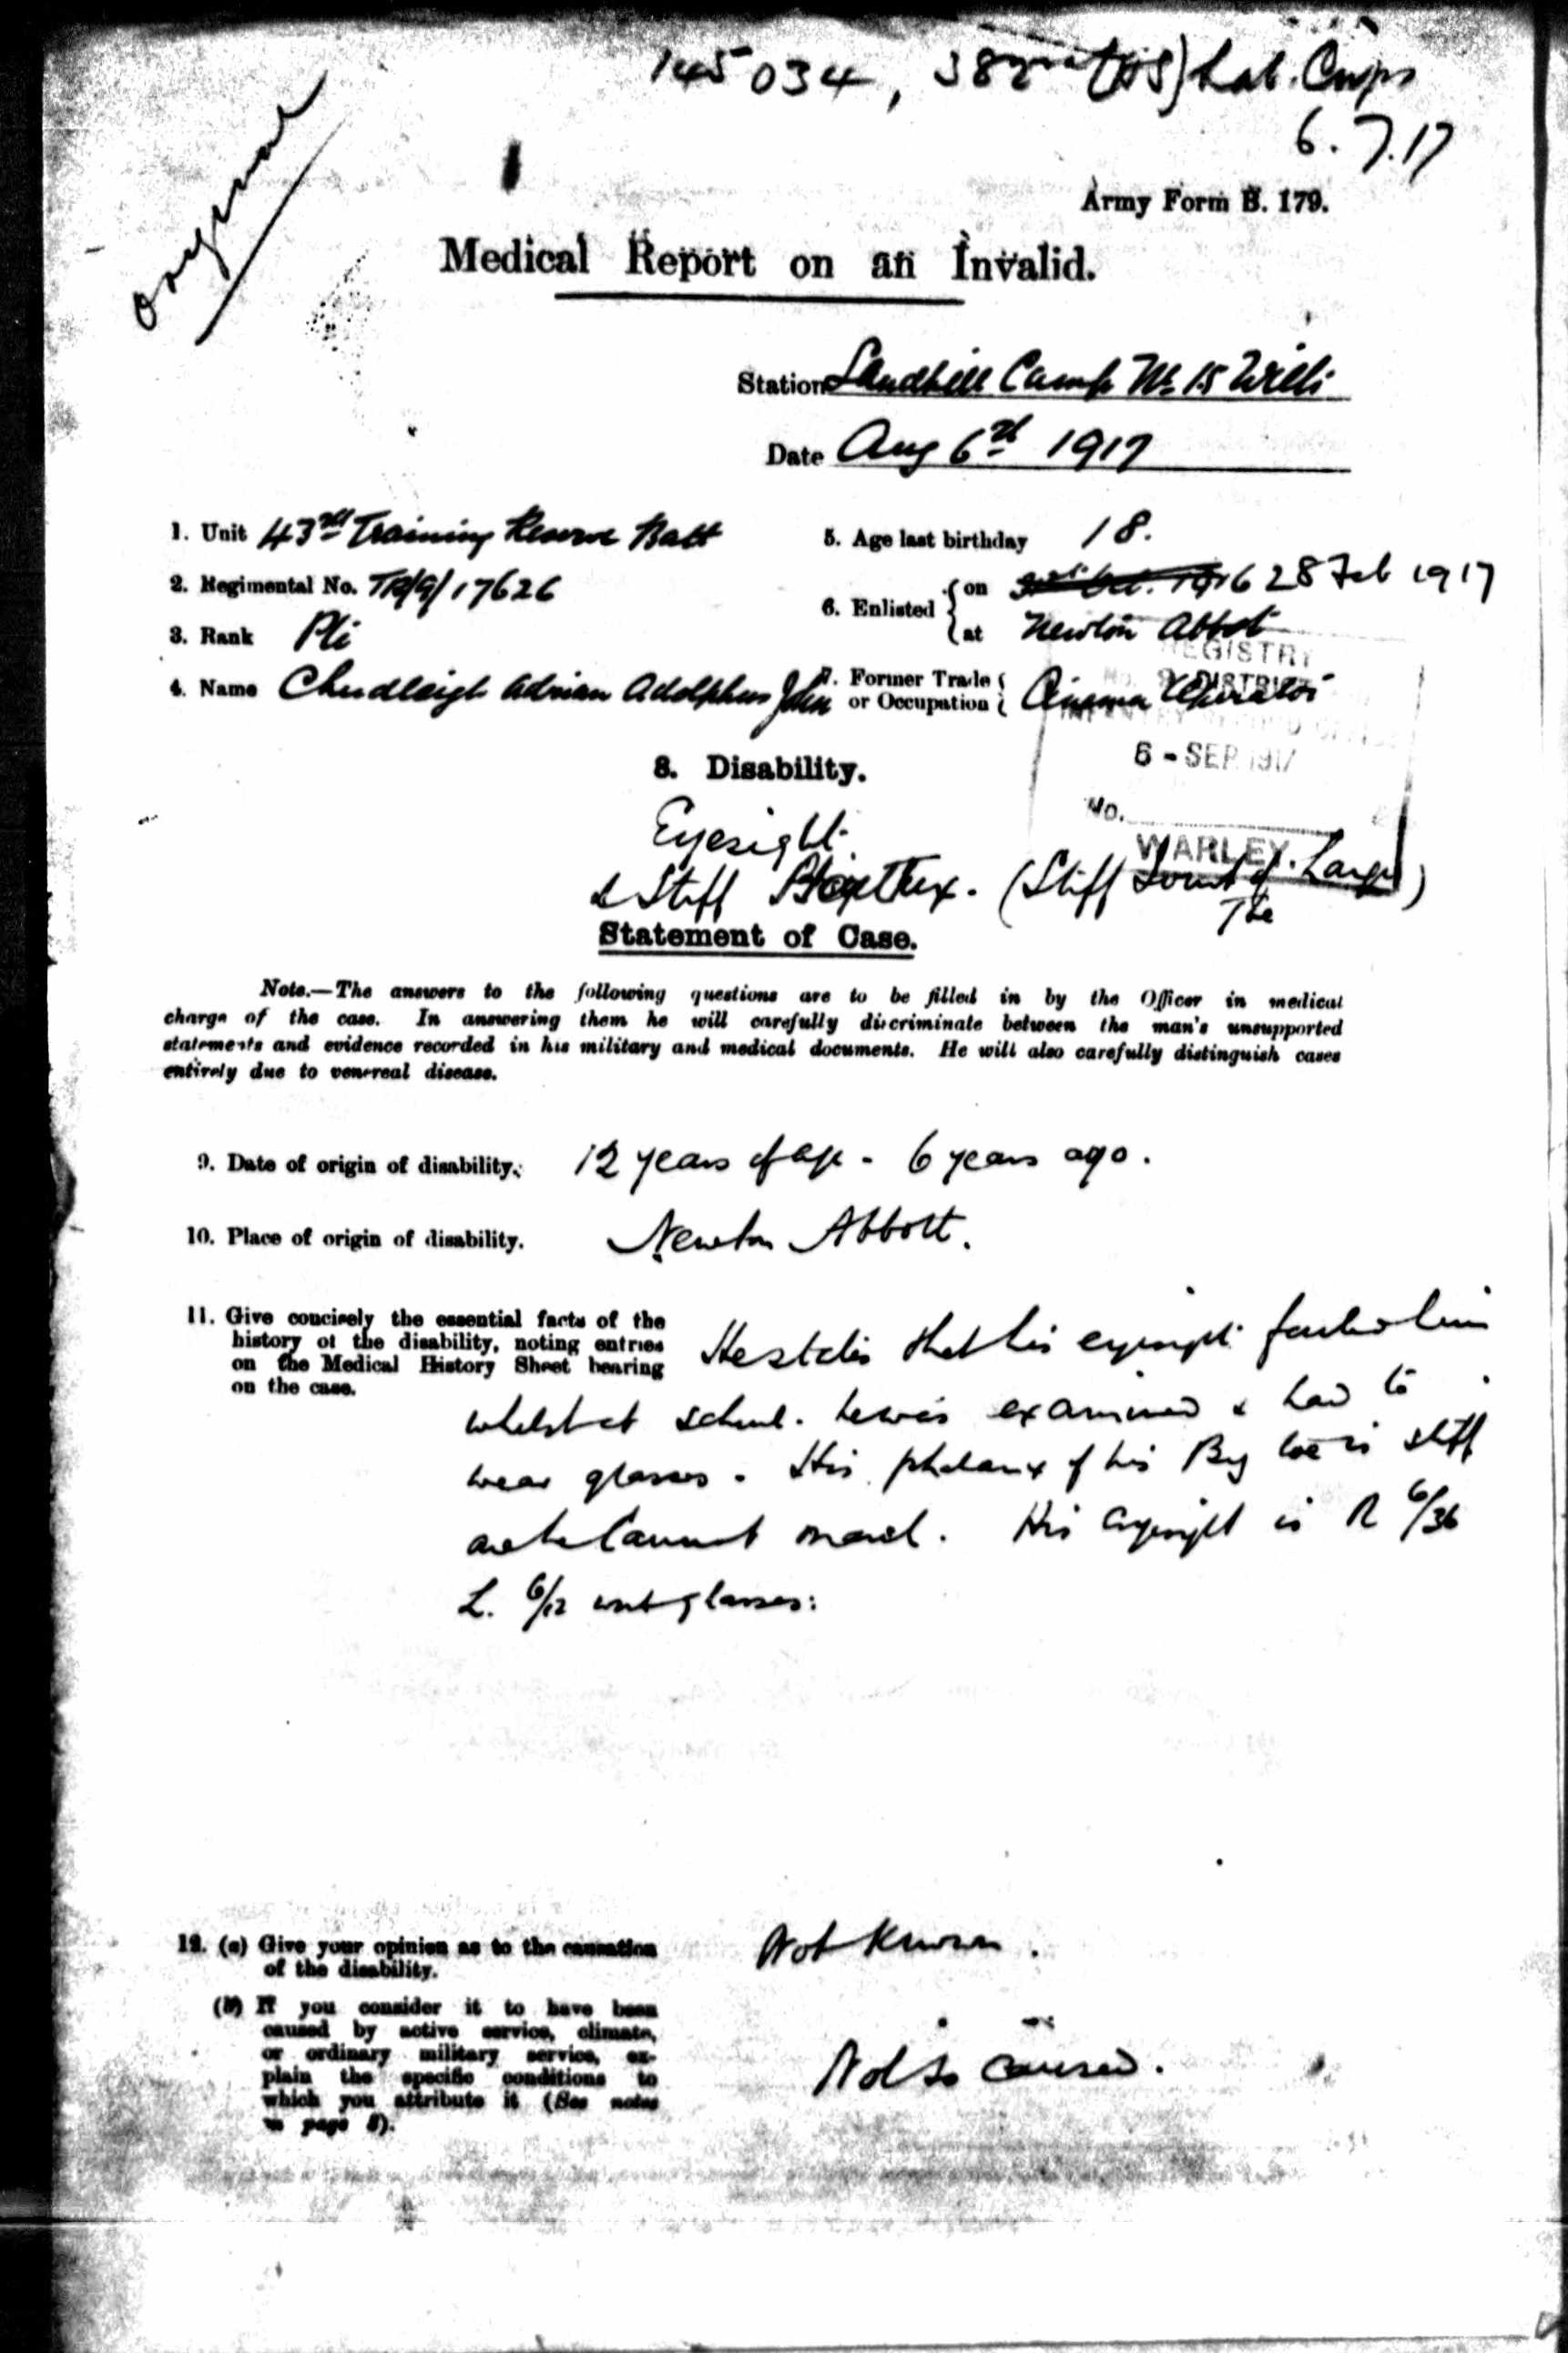 145034, 382 (HS) Lab. Corps
6.7.17
original
Army Form B. 179.
Medical Report on an Invalid.
Station Sandhill Camp No 15 Wilts
Date Aug 6th 1917
1. Unit 43rd Training Reserve Batt
5. Age last birthday 18.
2. Regimental No. TR/9/17626
6. Enlisted { on 1916 28 Feb 1917
at Newton Abbot
3. Rank Pte
4. Name Chudleigh Adrian Adolphus John
7. Former Trade or Occupation } Cinema Operator
REGISTRY
DISTRICT
6 - SEP 1917
No.
WARLEY
8. Disability.
Eyesight
& Stiff (Stiff Joint of Large
Toe)
Statement of Case.
Note.—The answers to the following questions are to be filled in by the Officer in medical
charge of the case. In answering them he will carefully discriminate between the man's unsupported
statements and evidence recorded in his military and medical documents. He will also carefully distinguish cases
entirely due to venereal disease.
9. Date of origin of disability. 12 years of age - 6 years ago.
10. Place of origin of disability. Newton Abbott.
11. Give concisely the essential facts of the
history of the disability, noting entries
on the Medical History Sheet bearing
on the case.
He states that his eyesight failed him
whilst at school. he was examined & had to
wear glasses. His phalanx of his Big toe is stiff
and he cannot march. His eyesight is R 6/36
L. 6/12 glasses:
12. (a) Give your opinion as to the causation
of the disability.
Not known.
(b) If you consider it to have been
caused by active service, climate,
or ordinary military service, ex-
plain the specific conditions to
which you attribute it (See notes
on page 3).
Not so caused.